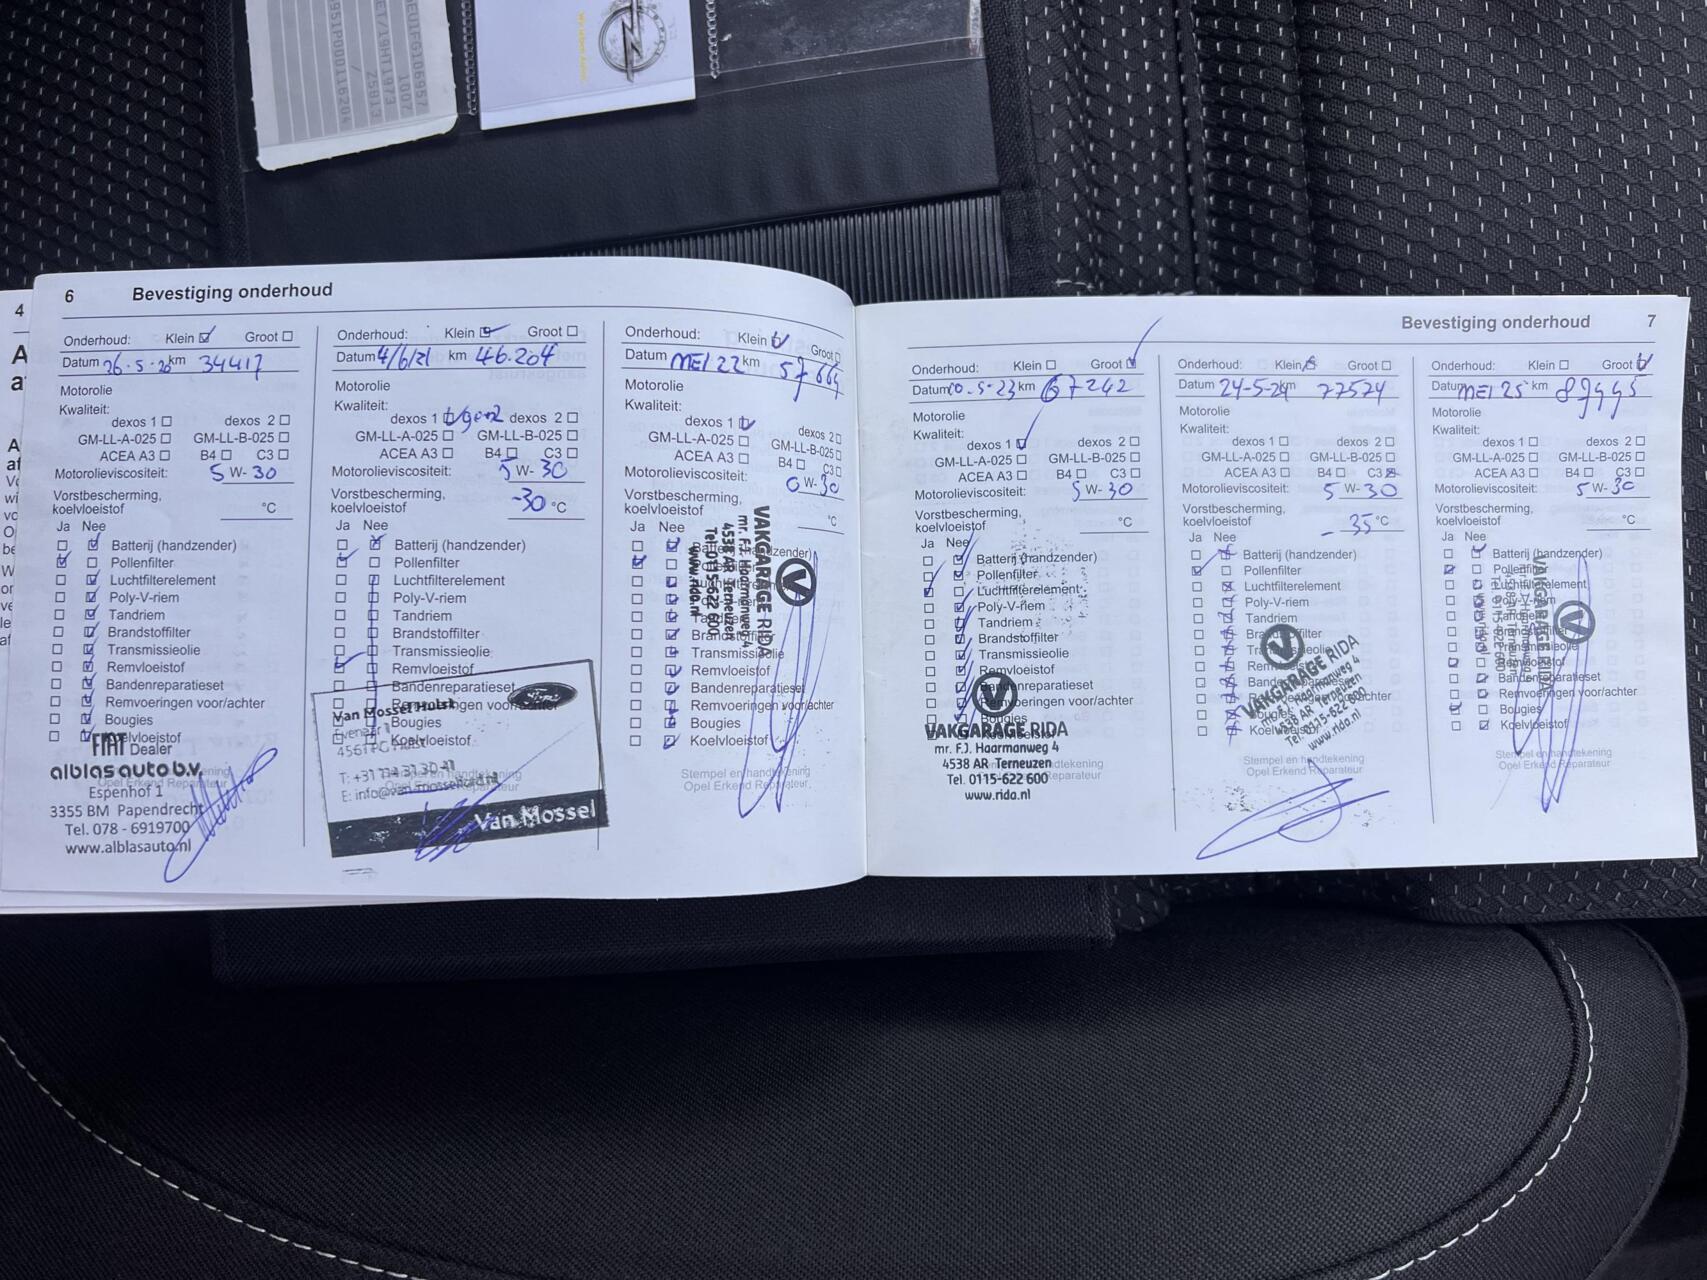 6 Bevestiging onderhoud
Onderhoud: Klein Groot
Datum 26-5-20 km 34417
Motorolie
Kwaliteit:
dexos 1 dexos 2
GM-LL-A-025 GM-LL-B-025
ACEA A3 B4 C3
Motorolieviscositeit: 5 W- 30
Vorstbescherming,
koelvloeistof °C
Ja Nee
Batterij (handzender)
Pollenfilter
Luchtfilterelement
Poly-V-riem
Tandriem
Brandstoffilter
Transmissieolie
Remvloeistof
Bandenreparatieset
Remvoeringen voor/achter
Bougies
Koelvloeistof
FIAT Dealer
alblas auto b.v.
Espenhof 1
3355 BM Papendrecht
Tel. 078 - 6919700
www.alblasauto.nl
Onderhoud: Klein Groot
Datum 4/6/21 km 46.204
Motorolie
Kwaliteit:
dexos 1 gen2 dexos 2
GM-LL-A-025 GM-LL-B-025
ACEA A3 B4 C3
Motorolieviscositeit: 5 W- 30
Vorstbescherming,
koelvloeistof -30 °C
Ja Nee
Batterij (handzender)
Pollenfilter
Luchtfilterelement
Poly-V-riem
Tandriem
Brandstoffilter
Transmissieolie
Remvloeistof
Bandenreparatieset
Remvoeringen voor/achter
Bougies
Koelvloeistof
Ford
Van Mossel Hulst
Van Mossel
Onderhoud: Klein Groot
Datum MEI 22 km 57664
Motorolie
Kwaliteit:
dexos 1 dexos 2
GM-LL-A-025 GM-LL-B-025
ACEA A3 B4 C3
Motorolieviscositeit: 0 W- 30
Vorstbescherming,
koelvloeistof °C
Ja Nee
Batterij (handzender)
Pollenfilter
Luchtfilterelement
Poly-V-riem
Tandriem
Brandstoffilter
Transmissieolie
Remvloeistof
Bandenreparatieset
Remvoeringen voor/achter
Bougies
Koelvloeistof
VAKGARAGE RIDA
mr. F.J. Haarmanweg 4
4538 AR Terneuzen
Tel. 0115-622 600
www.rida.nl
Stempel en handtekening
Opel Erkend Reparateur
Bevestiging onderhoud 7
Onderhoud: Klein Groot
Datum 10-5-23 km 67242
Motorolie
Kwaliteit:
dexos 1 dexos 2
GM-LL-A-025 GM-LL-B-025
ACEA A3 B4 C3
Motorolieviscositeit: 5 W- 30
Vorstbescherming,
koelvloeistof °C
Ja Nee
Batterij (handzender)
Pollenfilter
Luchtfilterelement
Poly-V-riem
Tandriem
Brandstoffilter
Transmissieolie
Remvloeistof
Bandenreparatieset
Bougies
VAKGARAGE RIDA
mr. F.J. Haarmanweg 4
4538 AR Terneuzen
Tel. 0115-622 600
www.rida.nl
Onderhoud: Klein Groot
Datum 24-5-24 km 77574
Motorolie
Kwaliteit:
dexos 1 dexos 2
GM-LL-A-025 GM-LL-B-025
ACEA A3 B4 C3
Motorolieviscositeit: 5 W- 30
Vorstbescherming,
koelvloeistof - 35 °C
Ja Nee
Batterij (handzender)
Pollenfilter
Luchtfilterelement
Poly-V-riem
Tandriem
Brandstoffilter
Transmissieolie
Remvloeistof
Bandenreparatieset
Bougies
Koelvloeistof
VAKGARAGE RIDA
mr. F.J. Haarmanweg 4
4538 AR Terneuzen
Tel. 0115-622 600
www.rida.nl
Stempel en handtekening
Opel Erkend Reparateur
Onderhoud: Klein Groot
Datum MEI 25 km 87445
Motorolie
Kwaliteit:
dexos 1 dexos 2
GM-LL-A-025 GM-LL-B-025
ACEA A3 B4 C3
Motorolieviscositeit: 5 W- 30
Vorstbescherming,
koelvloeistof °C
Ja Nee
Batterij (handzender)
Pollenfilter
Luchtfilterelement
Poly-V-riem
Tandriem
Brandstoffilter
Transmissieolie
Remvloeistof
Bandenreparatieset
Remvoeringen voor/achter
Bougies
Koelvloeistof
VAKGARAGE RIDA
Stempel en handtekening
Opel Erkend Reparateur
4